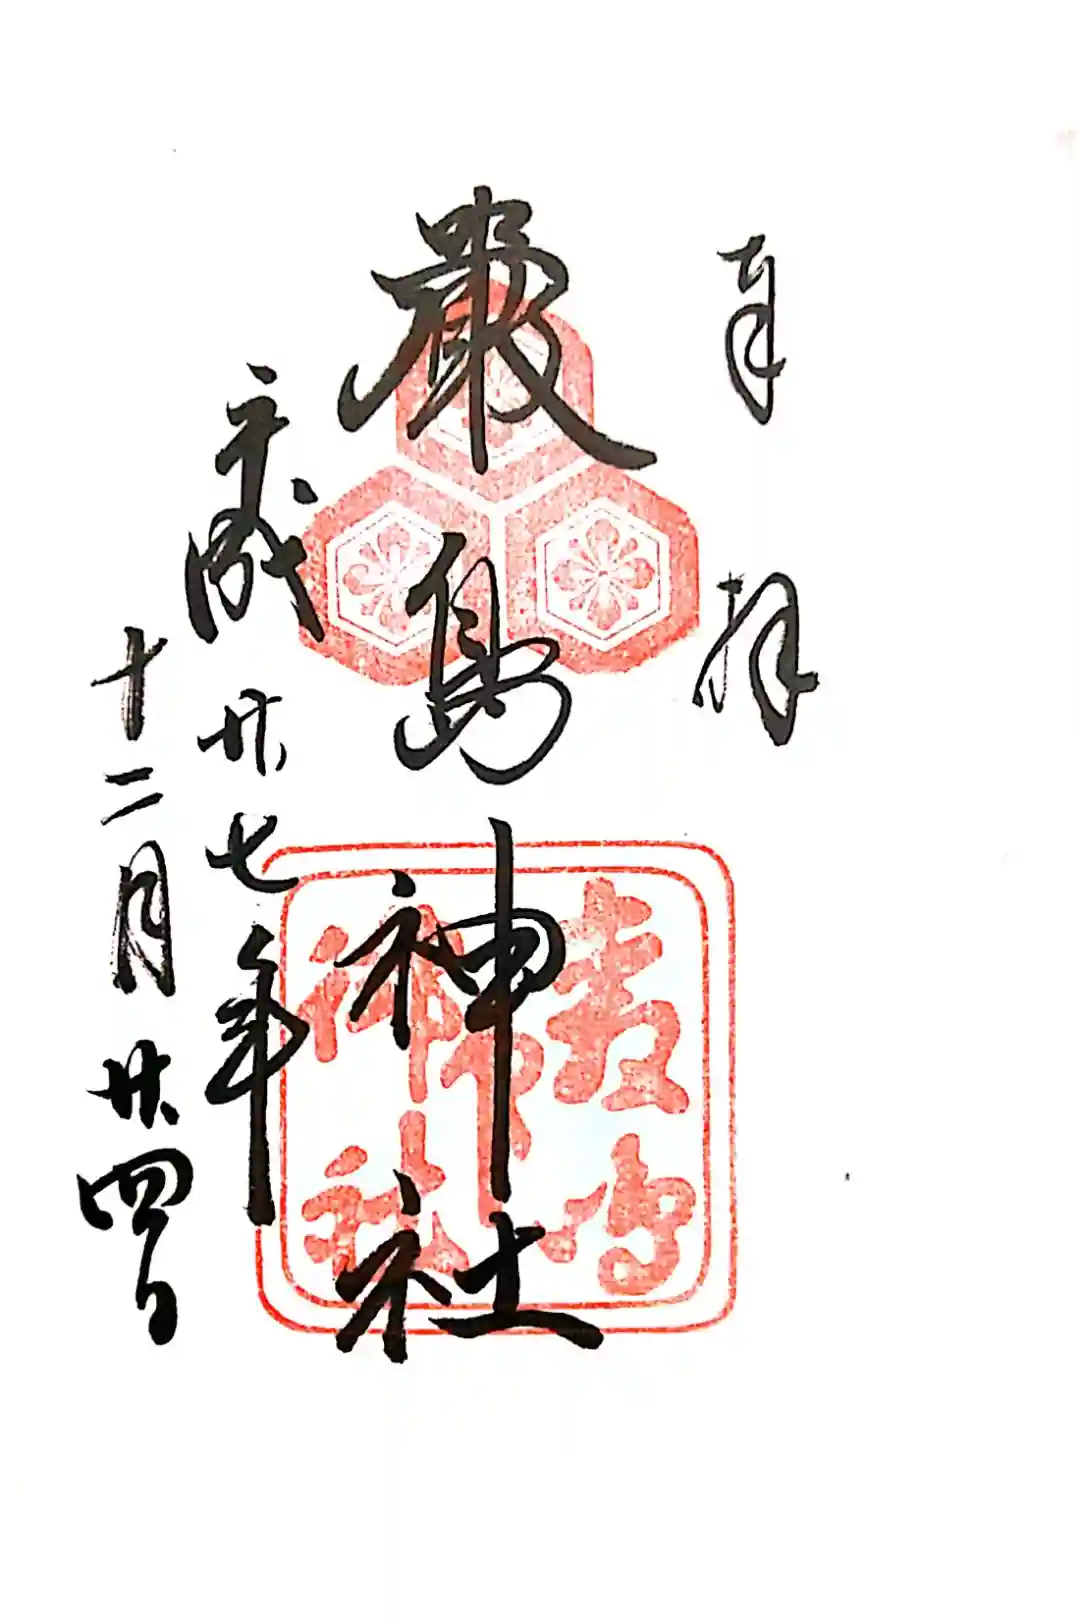 奉拝
嚴島神社
平成廿七年
十二月廿四日